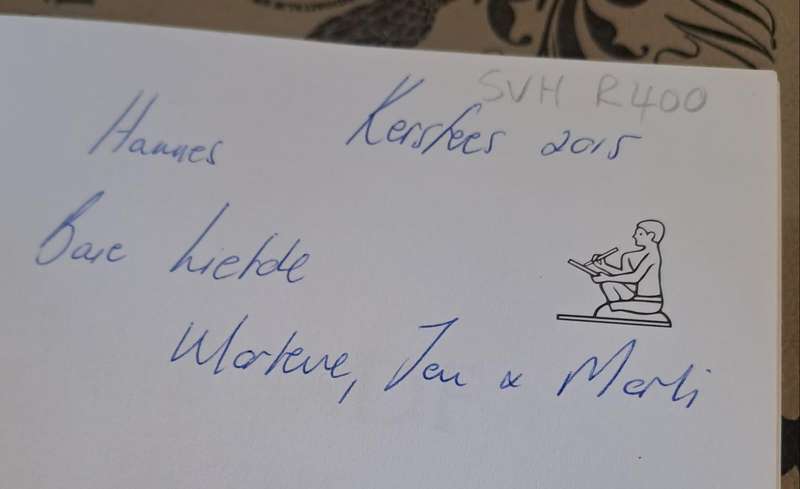 SVH R400
Hannes Kersfees 2015
Baie Liefde
Marlene, Jan & Marli